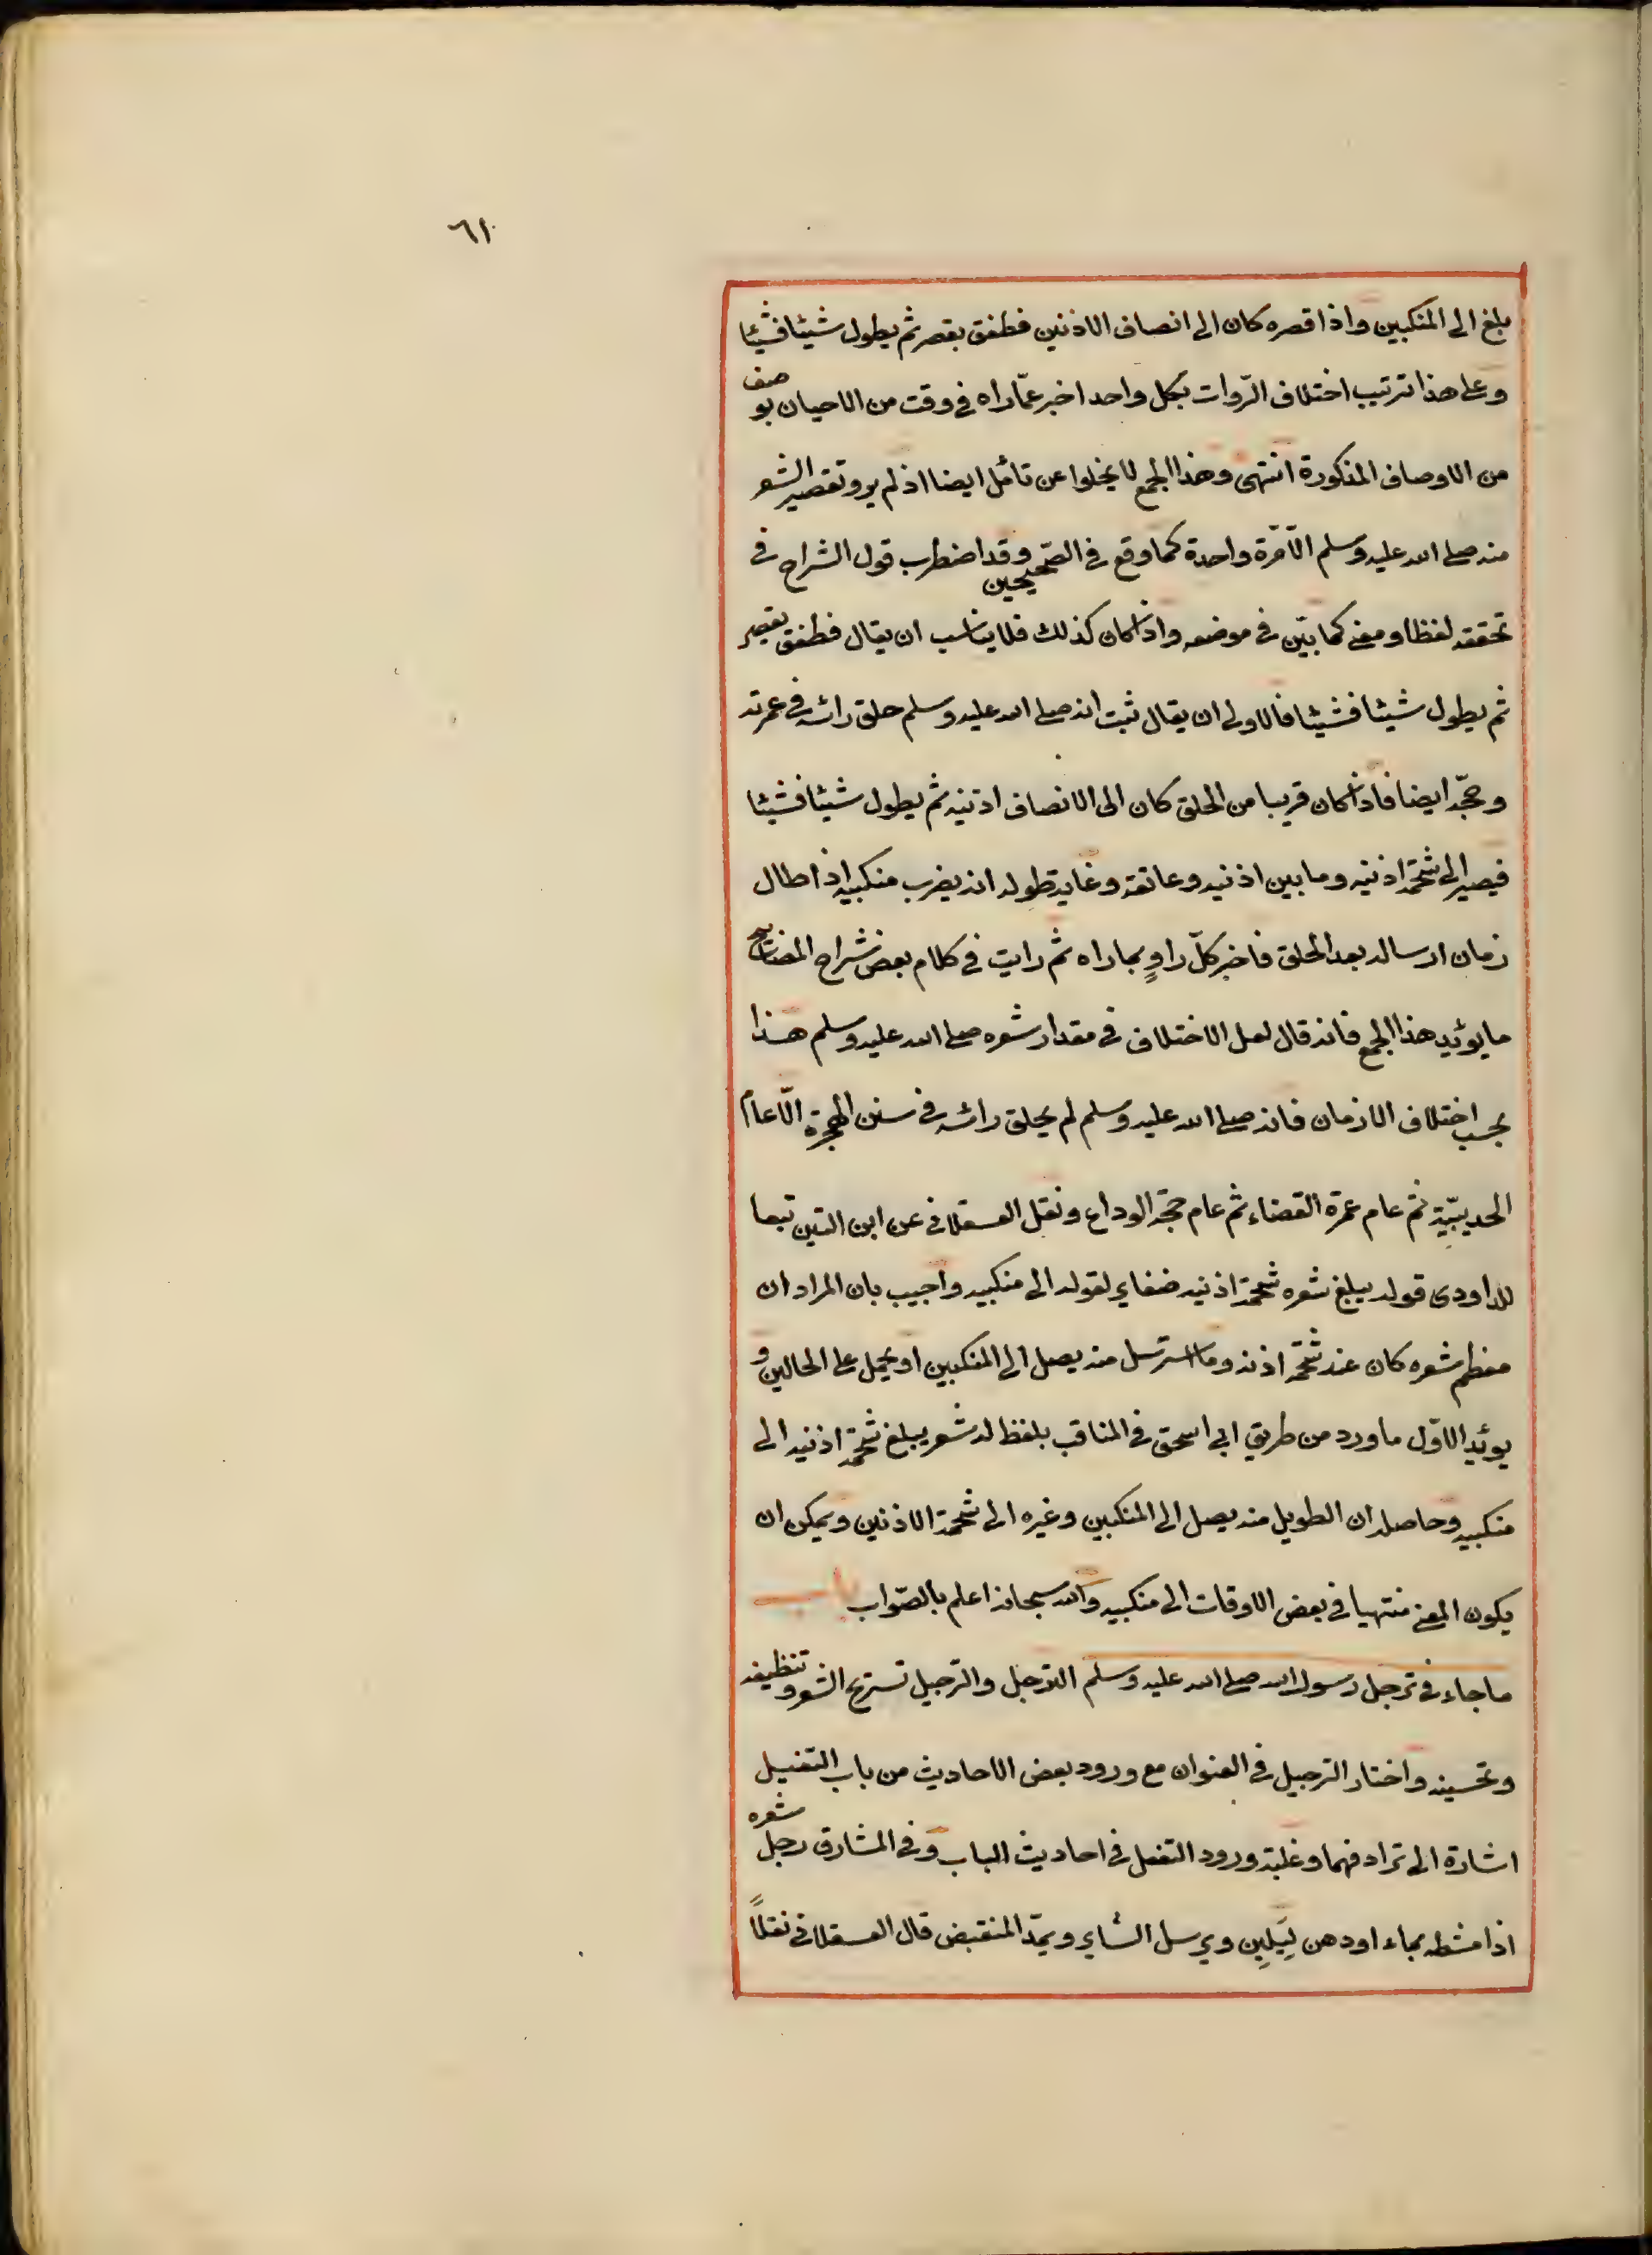 ٦١
بلغ الى المنكبين واذا قصره كان الى انصاف الاذنين فطفق يقصر ثم يطول شيئا فشيئا
وعلى هذا ترتيب اختلاف الرّوات بكل واحد اخبر عمّا راه في وقت من الاحيان بوصف
من الاوصاف المذكورة انتهى وهذا الجمع لا يخلوا عن تامّل ايضا اذ لم يرو تقصير الشعر
منه صلى الله عليه وسلم الّا مرّة واحدة كما وقع في الصّحيحين وقد اضطرب قول الشراح في
تحققه لفظا ومعنى كما بيّن في موضعه واذا كان كذلك فلا يناسب ان يقال فطفق يقصر
ثم يطول شيئا فشيئا فالاولى ان يقال ثبت انه صلى الله عليه وسلم حلق رائسه في عمرته
وحجّه ايضا فاذا كان قريبا من الحلق كان الى الانصاف اذنيه ثم يطول شيئا فشيئا
فيصير الى شحمة اذنيه وما بين اذنيه وعاتقه وغاية طوله انه يضرب منكبيه اذا طال
زمان ارساله بعد الحلق فاخبر كلّ راوٍ بما راه ثم رايت في كلام بعض شراح المصابيح
ما يوئيد هذا الجمع فانه قال لعل الاختلاف في مقدار شعره صلى الله عليه وسلم هذا
بحسب اختلاف الازمان فانه صلى الله عليه وسلم لم يحلق رائسه في سنن الهجرة الّا عام
الحديبيّة ثم عام عمرة القضاء ثم عام حجّة الوداع ونقل العسقلانى عن ابن التين تبعا
للداودى قوله يبلغ شعره شحمة اذنيه ضفاير لقوله الى منكبيه واجيب بان المراد ان
معظم شعره كان عند شحمة اذنه وما استرسل منه يصل الى المنكبين او يحمل على الحالين و
يوئيد الاوّل ما ورد من طريق ابى اسحق في المناقب بلفظ له شعر يبلغ شحمة اذنيه الى
منكبيه وحاصله ان الطويل منه يصل الى المنكبين وغيره الى شحمة الاذنين ويمكن ان
يكون المعنى منتهيا في بعض الاوقات الى منكبيه والله سبحانه اعلم بالصّواب باب
ما جاء في ترجل رسول الله صلى الله عليه وسلم الترجل والترجيل تسريح الشعر وتنظيفه
وتحسينه واختار الترجيل في العنوان مع ورود بعض الاحاديث من باب التفعيل
اشارة الى ترادفهما وغلبة ورود التفعل في احاديث الباب وفى المشارق رجل شعره
اذا مشطه بماء او دهن ليَلِين ويرسل الشاير ويمدّ المنقبض قال العسقلانى نقلاً